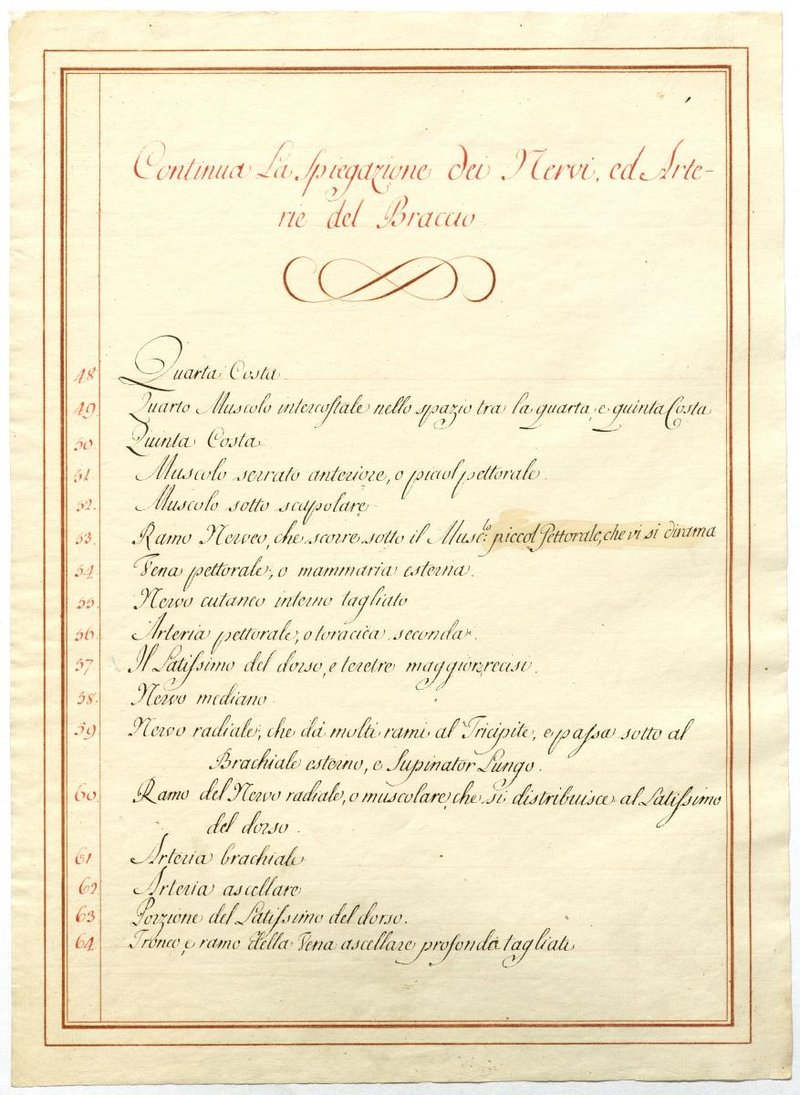 Continua La Spiegazione dei Nervi, ed Arte-
rie del Braccio
48 Quarta Costa
49 Quarto Muscolo intercostale nello spazio tra la quarta, e quinta Costa
50. Quinta Costa
51 Muscolo serrato anteriore, o piccol pettorale
52. Muscolo sotto scapolare
53. Ramo Nerveo, che scorre sotto il Musc:lo piccol Pettorale, che vi si dirama
54 Vena pettorale, o mammaria esterna.
55. Nervo cutaneo interno tagliato
56. Arteria pettorale, o toracica seconda.
57 Il Latissimo del dorso, e teretre maggior recisi.
58. Nervo mediano
59 Nervo radiale, che dà molti rami al Tricipite, e passa sotto al
Brachiale esterno, e Supinator Lungo.
60. Ramo del Nervo radiale, o muscolare, che si distribuisce al Latissimo
del dorso.
61 Arteria brachiale
62 Arteria ascellare
63 Porzione del Latissimo del dorso.
64 Tronco, e ramo della Vena ascellare profonda tagliati